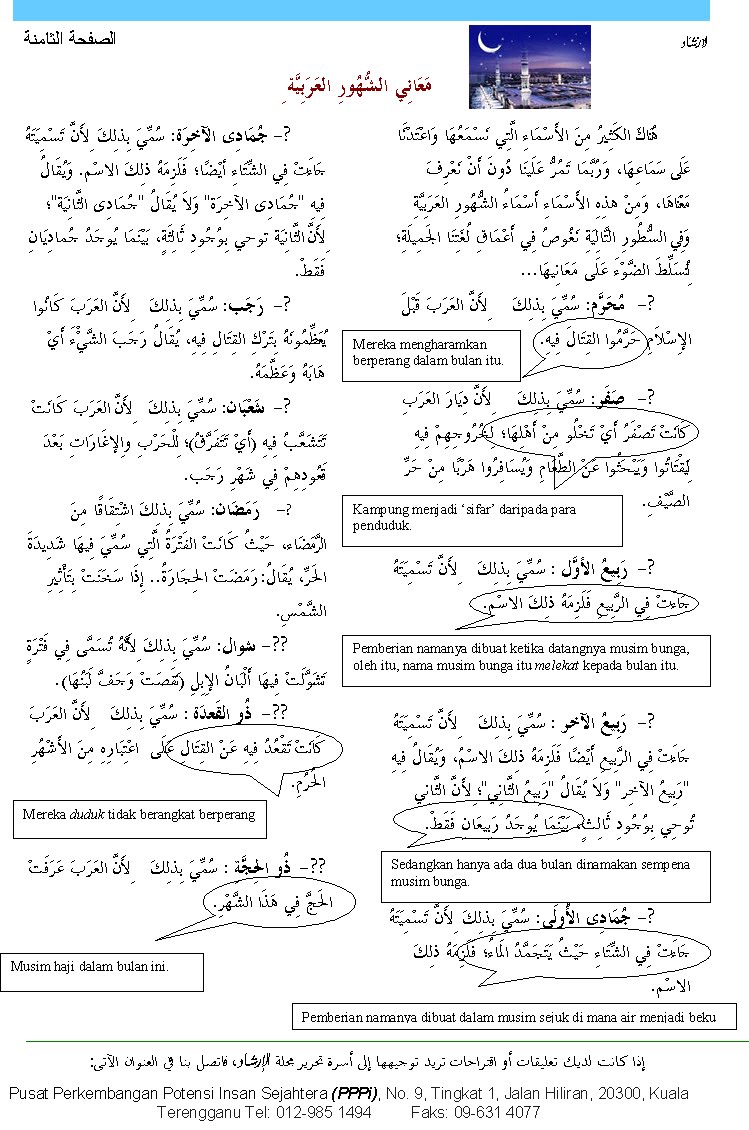 الإرشاد
الصفحة الثامنة
مَعَانِي الشُّهُورِ العَرَبِيَّةِ
هُنَاكَ الكَثِيرُ مِنَ الأَسْمَاءِ الَّتِي نَسْمَعُهَا وَاعْتَدْنَا
عَلَى سَمَاعِهَا، وَرُبَّمَا تَمُرُّ عَلَيْنَا دُونَ أَنْ نَعْرِفَ
مَعْنَاهَا، وَمِنْ هذِهِ الأَسْمَاءِ أَسْمَاءُ الشُّهُورِ العَرَبِيَّةِ
وَفِي السُّطُورِ التَّالِيَةِ نَغُوصُ فِي أَعْمَاقِ لُغَتِنَا الجَمِيلَةِ؛
لِنُسَلِّطَ الضَّوْءَ عَلَى مَعَانِيهَا...
?- مُحَرَّم: سُمِّيَ بِذلِكَ لِأَنَّ العَرَبَ قَبْلَ
الإِسْلَامِ حَرَّمُوا القِتَالَ فِيهِ.
Mereka mengharamkan
berperang dalam bulan itu.
?- صَفَر: سُمِّيَ بِذلِكَ لِأَنَّ دِيَارَ العَرَبِ
كَانَتْ تَصْفَرُ أَيْ تَخْلُو مِنْ أَهْلِهَا؛ لِخُرُوجِهِمْ فِيهِ
لِيَقْتَاتُوا وَيَبْحَثُوا عَنْ الطَّعَامِ وَيُسَافِرُوا هَرْبًا مِنْ حَرِّ
الصَّيْفِ.
Kampung menjadi ‘sifar’ daripada para
penduduk.
?- رَبِيعُ الأَوَّل : سُمِّيَ بِذلِكَ لِأَنَّ تَسْمِيَتَهُ
جَاءَتْ فِي الرَّبِيعِ فَلَزِمَهُ ذلِكَ الاسْمُ.
Pemberian namanya dibuat ketika datangnya musim bunga,
oleh itu, nama musim bunga itu melekat kepada bulan itu.
?- رَبِيعُ الآخر : سُمِّيَ بِذلِكَ لِأَنَّ تَسْمِيَتَهُ
جَاءَتْ فِي الرَّبِيعِ أَيْضًا فَلَزِمَهُ ذلِكَ الاسْمُ، وَيُقَالُ فِيهِ
"رَبِيعُ الآخِرِ" وَلَا يُقَالُ "رَبِيعُ الثَّانِي"؛ لِأَنَّ الثَّانِي
تُوحِي بِوُجُودِ ثَالِثٍ، بَيْنَمَا يُوجَدُ رَبِيعَانِ فَقَطْ.
Sedangkan hanya ada dua bulan dinamakan sempena
musim bunga.
?- جُمَادِى الأُولَى: سُمِّيَ بِذلِكَ لِأَنَّ تَسْمِيَتَهُ
جَاءَتْ فِي الشِّتَاءِ حَيْثُ يَتَجَمَّدُ المَاءُ؛ فَلَزِمَهُ ذلِكَ
الاسْم.
Pemberian namanya dibuat dalam musim sejuk di mana air menjadi beku
?- جُمَادى الآخِرَة: سُمِّيَ بِذلِكَ لِأَنَّ تَسْمِيَتَهُ
جَاءَتْ فِي الشِّتَاءِ أَيْضًا؛ فَلَزِمَهُ ذلِكَ الاسْم. وَيُقَالُ
فِيهِ "جُمَادِى الآخِرَة" وَلَا يُقَالُ "جُمَادِى الثَّانِيَة"؛
لِأَنَّ الثَّانِيَة توحي بِوُجُودِ ثَالِثَةٍ، بَيْنَمَا يُوجَدُ جُمادِيَانِ
فَقَطْ.
?- رَجَب: سُمِّيَ بِذلِكَ لِأَنَّ العَرَبَ كَانُوا
يُعَظِّمُونَهُ بِتَرْكِ القِتَالِ فِيهِ، يُقَالُ رَجَبَ الشَّيْءَ أَيْ
هَابَهُ وَعَظَّمَهُ.
?- شَعْبَان: سُمِّيَ بِذلِكَ لِأَنَّ العَرَبَ كَانَتْ
تَتَشَعَّبُ فِيهِ (أَيْ تَتَفَرَّقُ)؛ لِلْحَرْبِ وَالإِغَارَاتِ بَعْدَ
قُعُودِهِمْ فِي شَهْرِ رَجَب.
?- رَمَضَان: سُمِّيَ بِذلِكَ اشْتِقَاقًا مِنَ
الرَّمْضَاء، حَيْثُ كَانَتْ الفَتْرَةُ الَّتِي سُمِّيَ فِيهَا شَدِيدَةَ
الحَرِّ، يُقَالُ: رَمَضَتْ الحِجَارَةُ.. إِذَا سَخَنَتْ بِتَأْثِيرِ
الشَّمْسِ.
??- شوال: سُمِّيَ بِذلِكَ لِأَنَّهُ تُسَمَّى فِي فَتْرَةٍ
تَشَوَّلَتْ فِيهَا أَلْبَانُ الإِبِلِ (نَقَصَتْ وَجَفَّ لَبَنُهَا).
??- ذُو القَعدَة : سُمِّيَ بِذلِكَ لِأَنَّ العَرَبَ
كَانَتْ تَقْعُدُ فِيهِ عَنْ القِتَالِ عَلَى اعْتِبَارِهِ مِنَ الأَشْهُرِ
الحُرُمِ.
Mereka duduk tidak berangkat berperang
??- ذُو الحِجَّةِ : سُمِّيَ بِذلِكَ لِأَنَّ العَرَبَ عَرَفَتْ
الحَجَّ فِي هَذَا الشَّهْرِ.
Musim haji dalam bulan ini.
إذا كانت لديك تعليقات أو اقتراحات تريد توجيهها إلى أسرة تحرير مجلة الإرشاد، فاتصل بنا في العنوان الآتي:
Pusat Perkembangan Potensi Insan Sejahtera (PPPi), No. 9, Tingkat 1, Jalan Hiliran, 20300, Kuala
Terengganu Tel: 012-985 1494 Faks: 09-631 4077